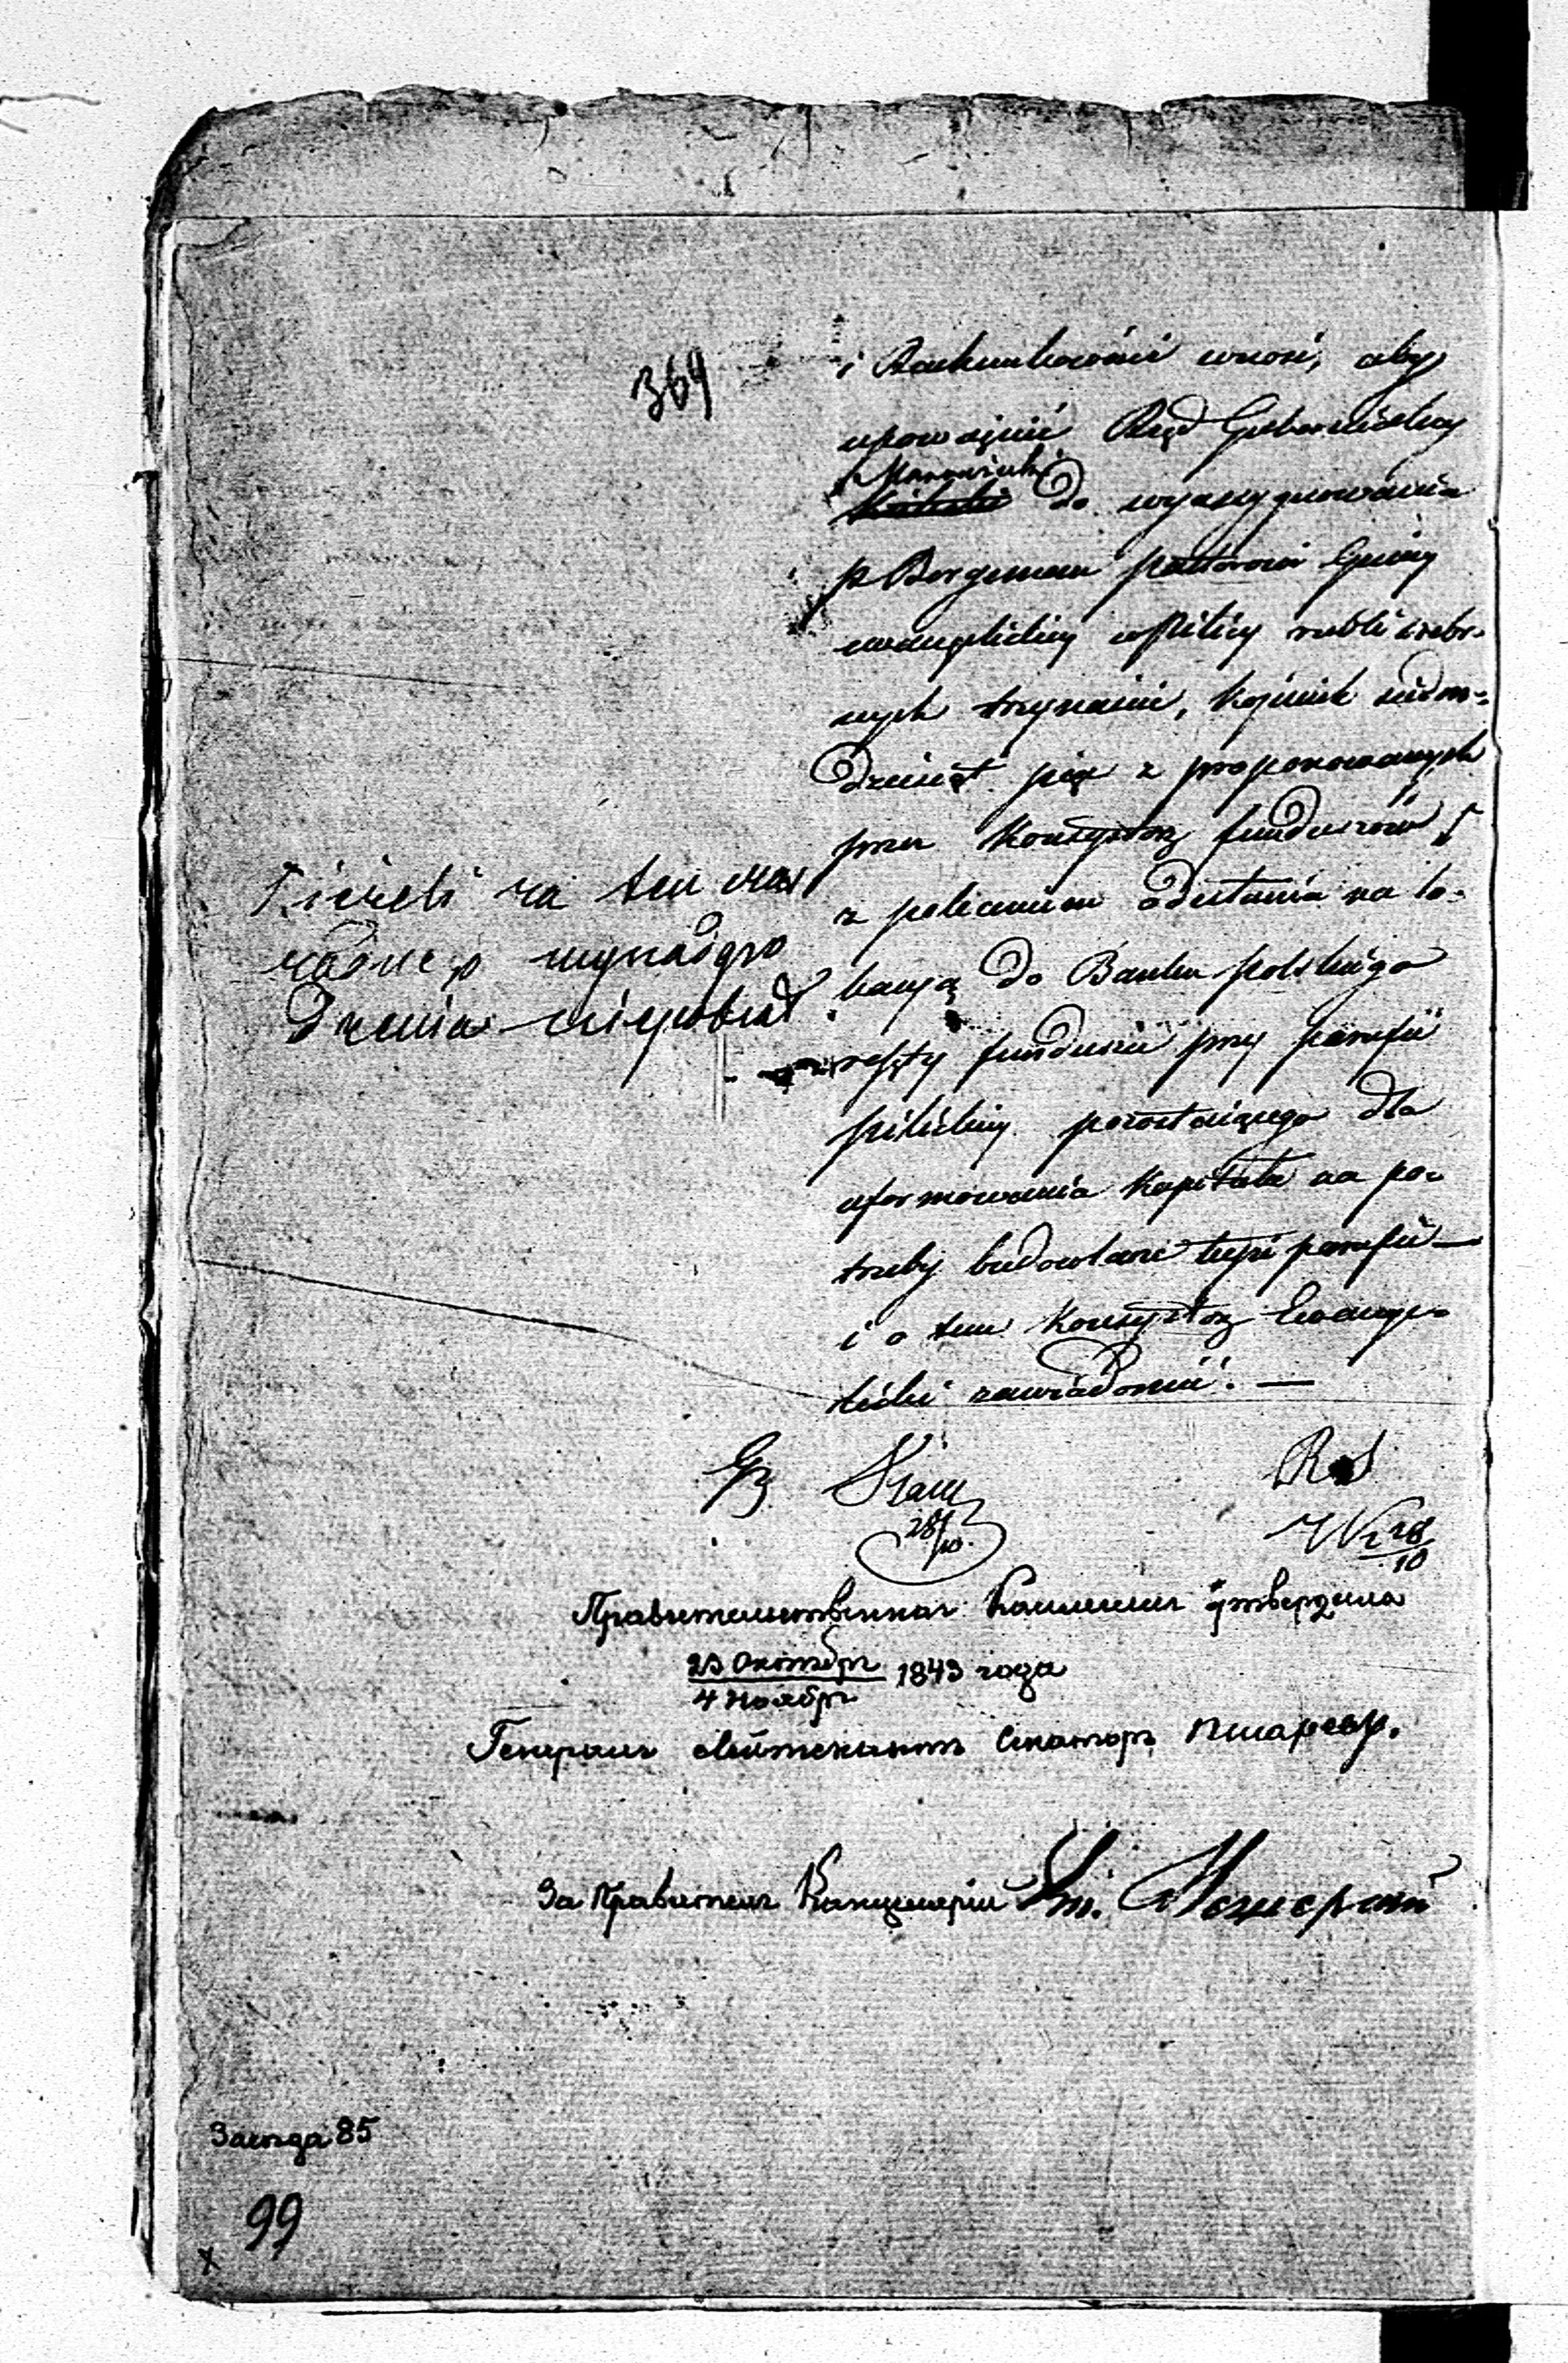 364
i Rachunkowości wnosi, aby
upoważnić Rząd Gubernialny
Mazowiecki
do wyassygnowania
p. Bergeman pastorowi Gminy
ewangelickiej w Pilicy rubli srebr-
nych trzynaście, kopiiek siedm-
dziesiąt pięć z proponowanych
przez Konsystorz funduszów
z poleceniem odesłania na lo-
kacyą do Banku polskiego
reszty funduszu przy parafii
pilickiej pozostającego dla
uformowania kapitału na po-
trzeby budowlane tejże parafii —
i o tem Konsystorz Ewange-
licki zawiadomić. —
jeżeli za ten czas
żadnego wynadgro
dzenia niepobrał
28/10
28/10
Правительственная Коммисія утвердила
23 Октябр. / 4 Ноябр. 1843 года
Генералъ Лейтенантъ Сенаторъ Писаревъ.
За Правителя Канцеляріи
85
99
x